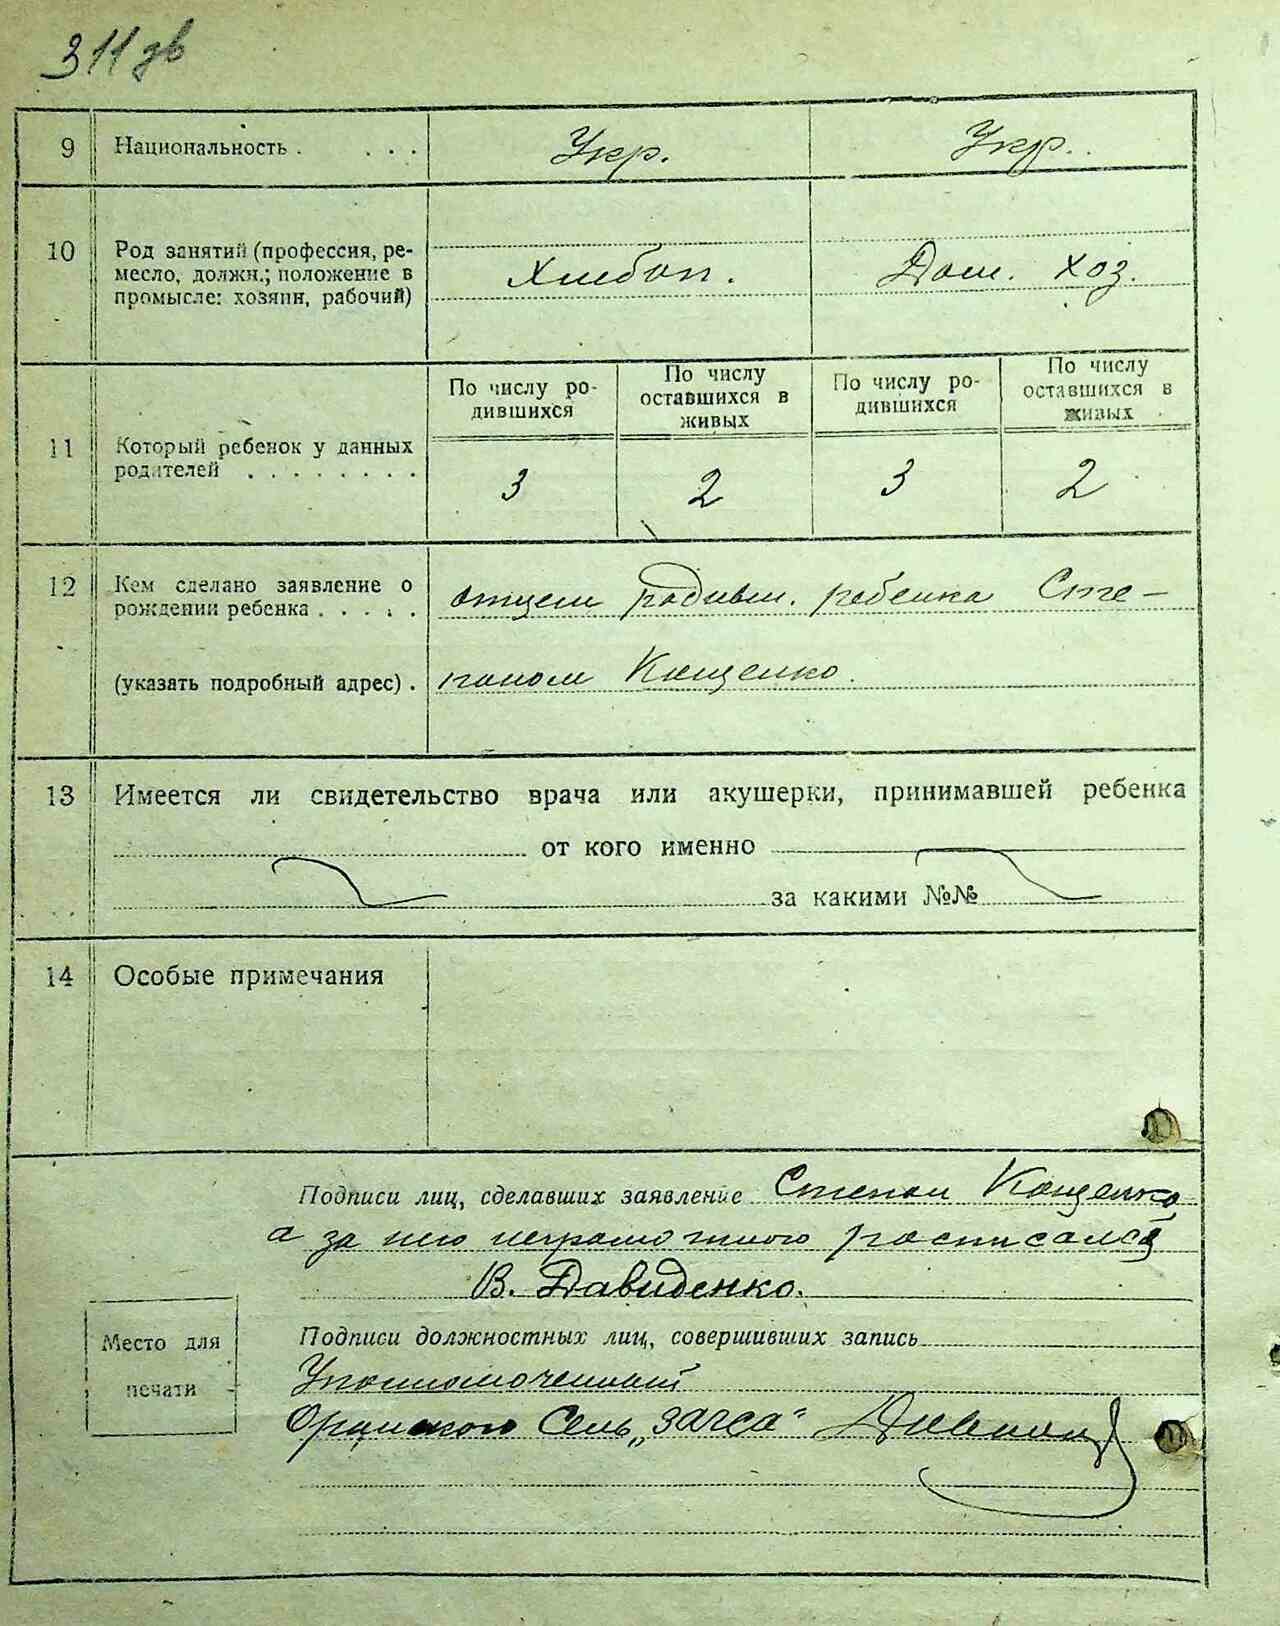 311 зв
9 Национальность . . . . Укр. Укр.
10 Род занятий (профессия, ре-
месло, должн.; положение в
промысле: хозяин, рабочий)
Хлебоп. Дом. хоз.
11 Который ребенок у данных
родителей . . . . . . . .
По числу ро-
дившихся
По числу
оставшихся в
живых
По числу ро-
дившихся
По числу
оставшихся в
живых
3 2 3 2
12 Кем сделано заявление о
рождении ребенка . . . . .
(указать подробный адрес) .
отцем родивш. ребенка Сте-
паном Кащенко.
13 Имеется ли свидетельство врача или акушерки, принимавшей ребенка
от кого именно
за какими №№
14 Особые примечания
Подписи лиц, сделавших заявление Степан Кащенко
а за него неграмотного росписался
В. Давиденко.
Место для
печати
Подписи должностных лиц, совершивших запись
Уполномоченный
Сель „загса“